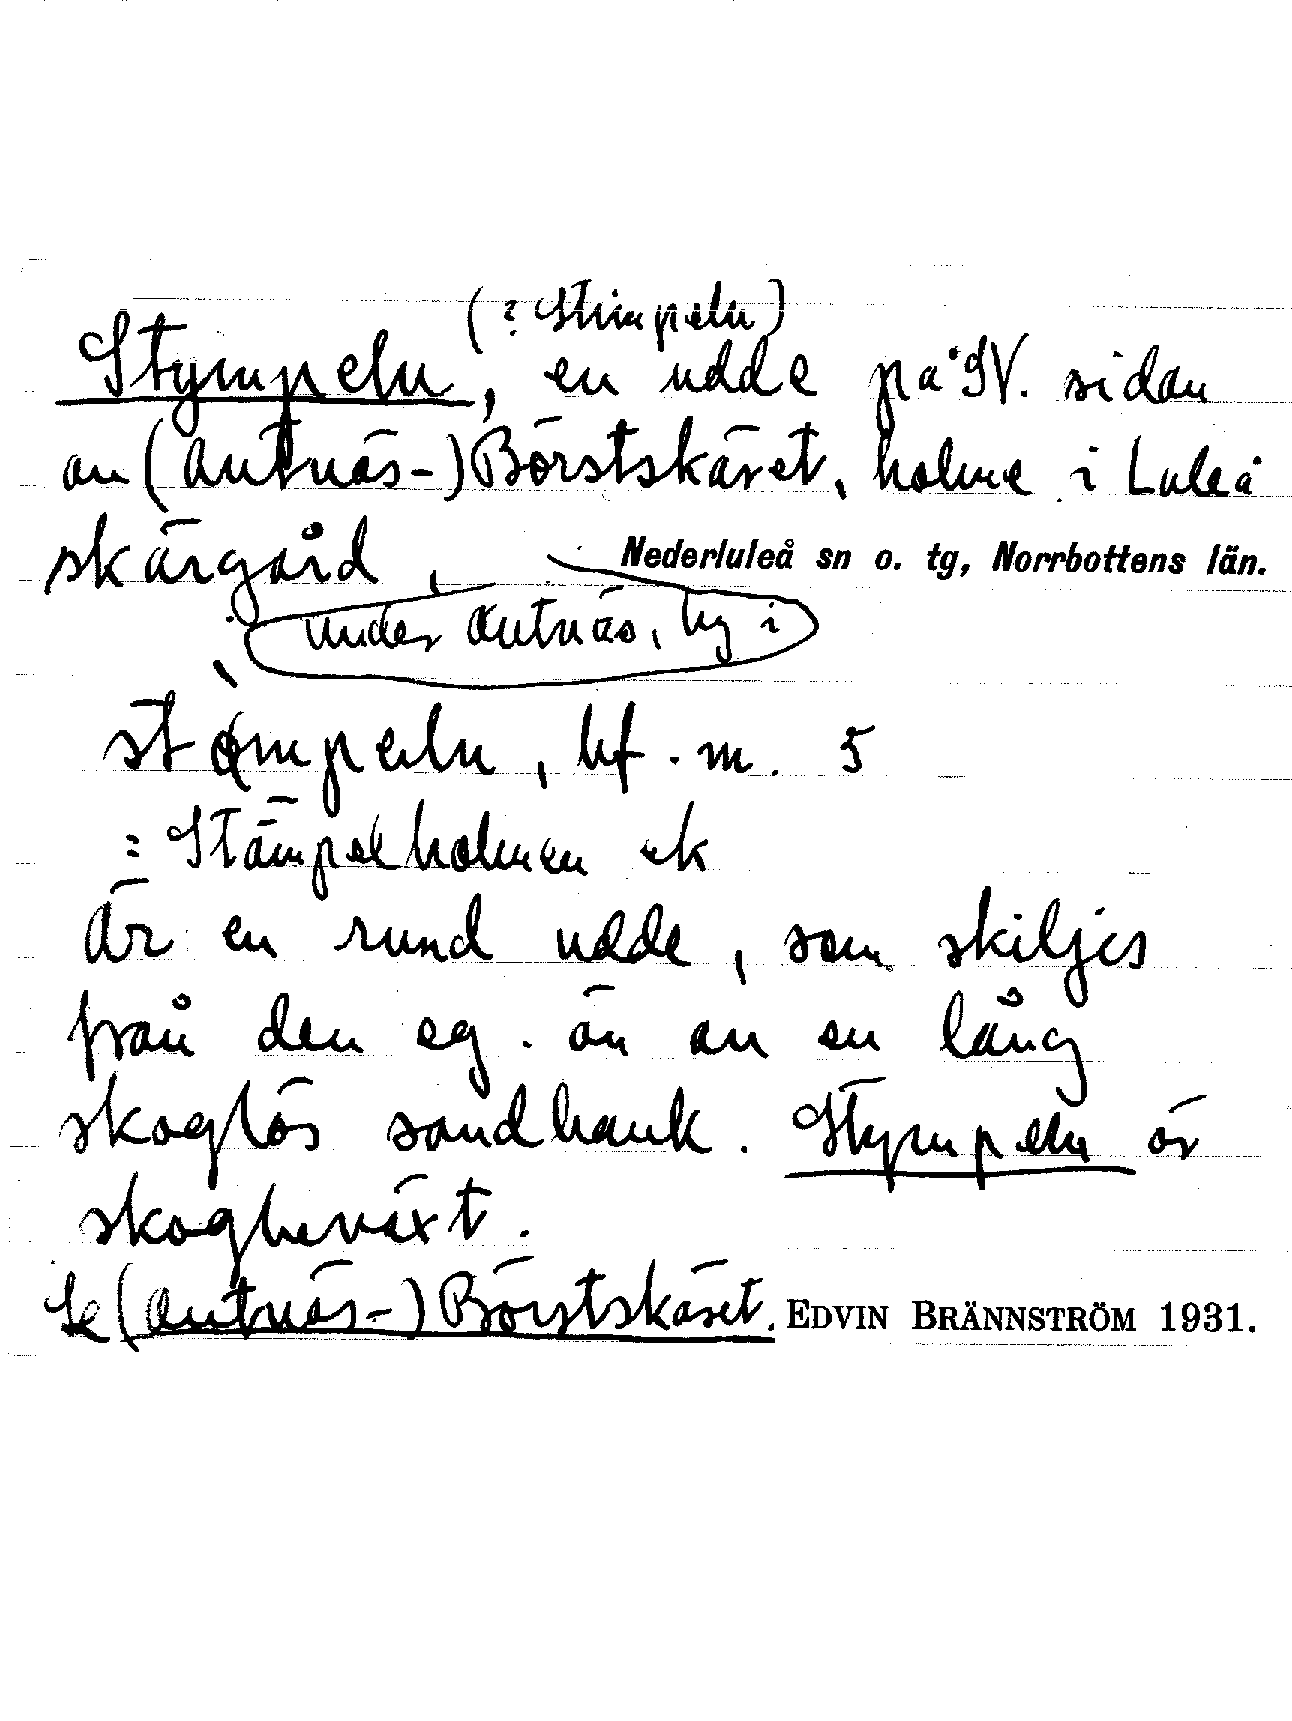 (? Stimpeln)
Stympeln, en udde på SV. sidan
av (Antnäs-) Börstskäret, holme i Luleå
skärgård, Nederluleå sn o. tg, Norrbottens län.
under Antnäs, by i
bf. m. 5
= Stämpelholmen ek
Är en rund udde, som skiljes
från den eg. ön av en lång
skoglös sandbank. Stympeln är
skogbeväxt.
Se (Antnäs-) Börstskäret. EDVIN BRÄNNSTRÖM 1931.